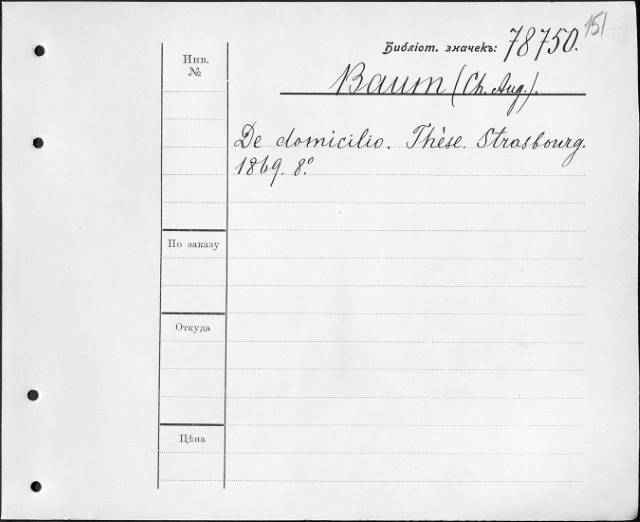 151
Библіот. значекъ: 78750.
Инв.
№
Baum (Ch. Aug.).
De domicilio. Thèse. Strasbourg.
1869. 8.°
По заказу
Откуда
Цѣна